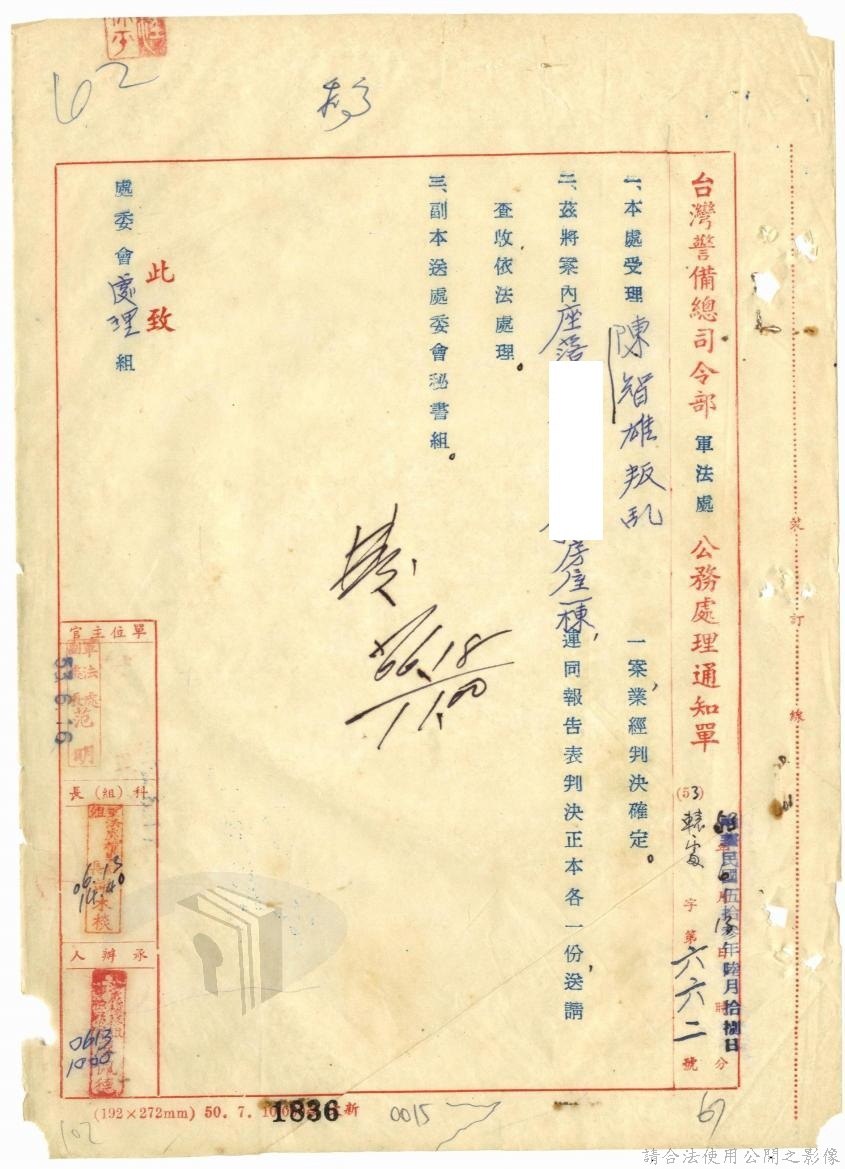 62
台灣警備總司令部 軍法處 公務處理通知單
(53) 轅處 字第六六二號
年 月 13 日 時 分
民國伍拾參年陸月拾捌日
一、本處受理陳智雄叛乱一案,業經判決確定。
二、茲將案內座落 房屋一棟,連同報告表判決正本各一份,送請
查收依法處理。
三、副本送處委會秘書組。
此致
處委會處理組
6.18
11.00
單位主官
軍法處
范明
53.6.16
科(組)長
06.13
14.40
承辦人
0613
1000
裝訂線
(192×272mm) 50. 7. 10.0
1836
0015
102
請合法使用公開之影像